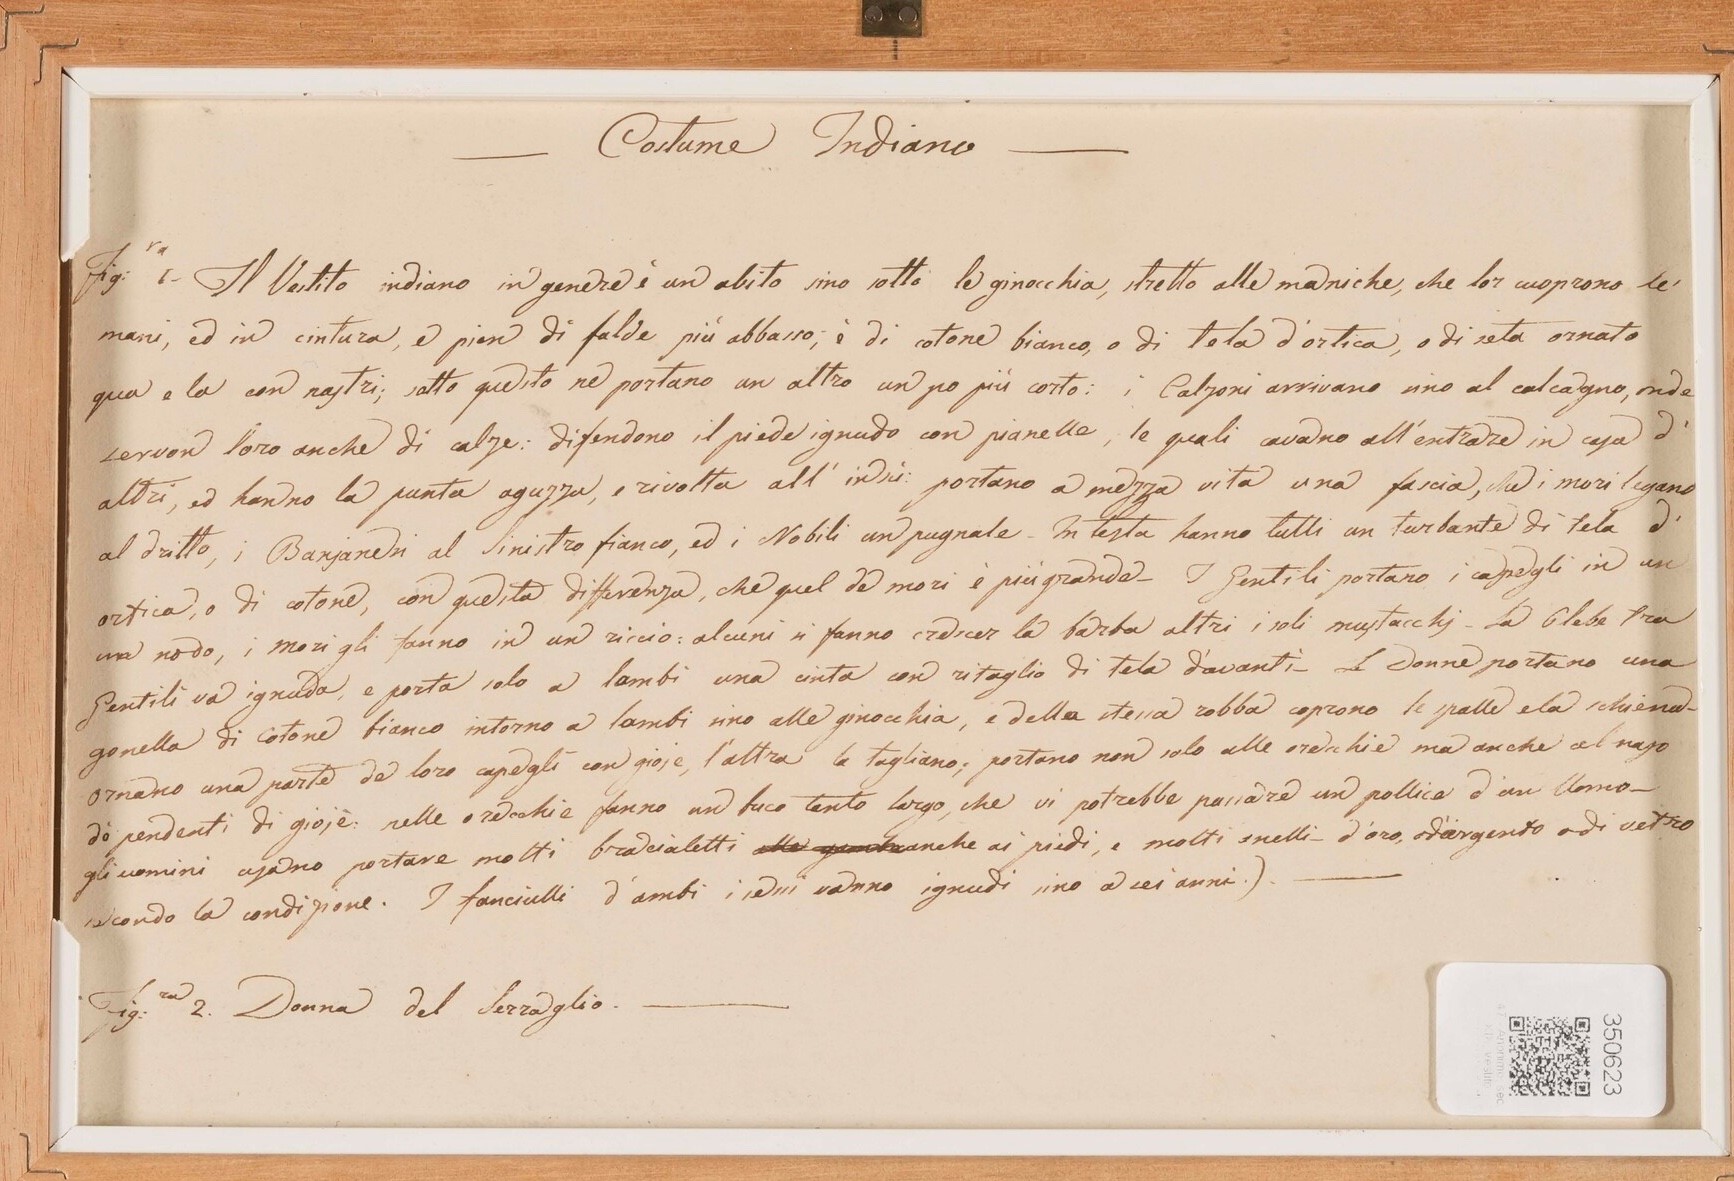 — Costume Indiano —
Fig:ra 1- Il Vestito indiano in genere è un abito sino sotto le ginocchia, stretto alle maniche, che lor cuoprono le
mani, ed in cintura, e pien di falde più abbasso; è di cotone bianco, o di tela d'ortica, o di seta ornato
qua e la con nastri; sotto questo ne portano un altro un po più corto: i Calzoni arrivano sino al calcagno, onde
servon loro anche di calze: difendono il piede ignudo con pianelle, le quali cavano all'entrare in casa d'
altri, ed hanno la punta aguzza, e rivolta all' insù: portano a mezza vita una fascia, che i mori legano
al dritto, i Banjaneni al sinistro fianco, ed i Nobili un pugnale - In testa hanno tutti un turbante di tela d'
ortica, o di cotone, con questa differenza, che quel de mori è più grande - I Gentili portano i capegli in un
un nodo, i mori gli fanno in un riccio: alcuni si fanno crescer la barba altri i soli mustacchj - La Plebe tra
Gentili va ignuda, e porta solo a lombi una cinta con ritaglio di tela d'avanti - Le Donne portano una
gonella di cotone bianco intorno a lombi sino alle ginocchia, e della stessa robba coprono le spalle e la schiena -
ornano una parte de loro capegli con gioje, l'altra la tagliano; portano non solo alle orecchie ma anche al naso
dò pendenti di gioje: nelle orecchie fanno un buco tanto largo, che vi potrebbe passare un pollice d'un Uomo -
gli uomini usano portare molti braccialetti anche ai piedi, e molti anelli - d'oro, o d'argento o di vetro
secondo la condizione. I fanciulli d'ambi i sessi vanno ignudi sino a sei anni.) —
Fig:ra 2. Donna del Serraglio. —
350623